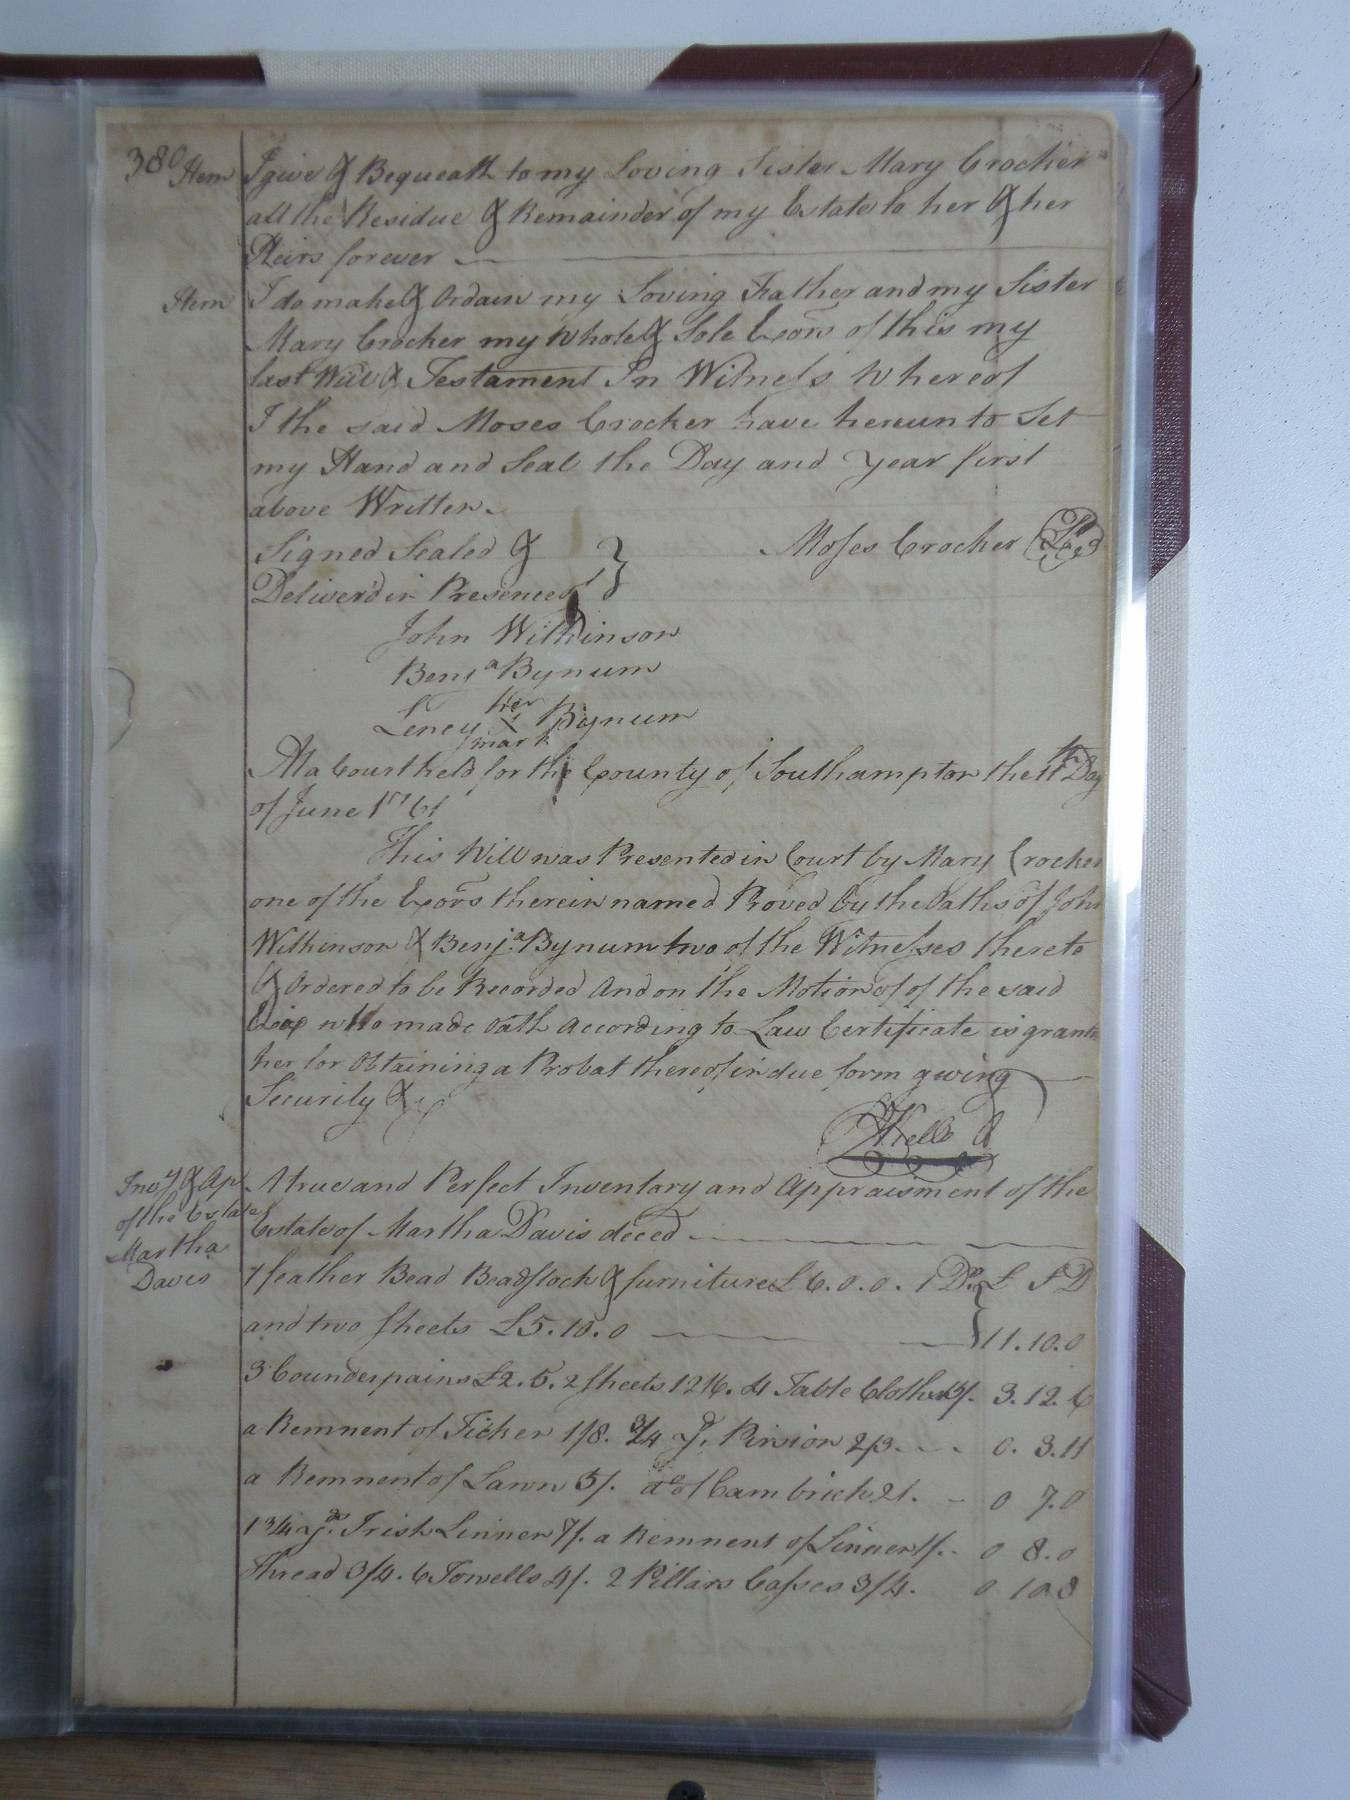 380 Item I give & Bequeath to my Loving Sister Mary Crocker
all the Residue & Remainder of my Estate to her & her
Heirs forever
Item I do make & Ordain my Loving Father and my Sister
Mary Crocker my Whole & Sole Exors of this my
last Will & Testament In Witness Whereof
I the said Moses Crocker have hereunto Set
my Hand and Seal the Day and year first
above Written.
Signed Sealed & } Moses Crocker
Deliver'd in Presence of
John Wilkinson
Benja Bynum
her
Leney X Bynum
mark
At a Court held for the County of Southampton the 11th Day
of June 1761
This Will was Presented in Court by Mary Crocker
one of the Exors therein named Proved by the Oaths of John
Wilkinson & Benja. Bynum two of the Witnesses thereto
& Ordered to be Recorded And on the Motion of of the said
Exix who made Oath According to Law Certificate is grante
her for Obtaining a Probat thereof in due form giving
Security &c
Invy & Ap A true and Perfect Inventory and Appraisment of the
of the Estate Estate of Martha Davis deced
Martha
Davis 1 feather Bead Beadstock & furniture £ 6. 0. 0. 1 Do. } £ S D
and two sheets £5. 10. 0 11. 10. 0
3 Counderpains £2. 5. 2 sheets 12/6. 4 Table Cloths 15/. 3. 12. 6
a Remnent of Ticken 1/8. 3/4 yd. Pirsion 2/3. 0. 3. 11
a Remnent of Lawn 5/. do of Cambrick 2/. 0 7. 0
1 3/4 yds. Irish Linnen 7/. a Remnent of Linnen 1/. 0 8. 0
thread 3/4. 6 Towells 4/. 2 Pillars Casses 3/4. 0 10 8